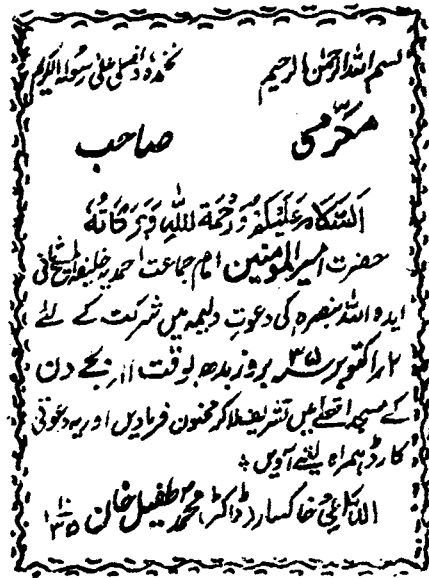 بسم اللہ الرحمٰن الرحیم نحمدہ و نصلی علیٰ رسولہ الکریم
مکرمی صاحب
السلام علیکم ورحمۃ اللہ وبرکاتہ
حضرت امیر المومنین امام جماعت احمدیہ خلیفۃ المسیح الثانی
ایدہ اللہ بنصرہ کی دعوتِ ولیمہ میں شرکت کے لئے
۲/اکتوبر ۳۵ء بروز بدھ بوقت ۱۱ بجے دن
کے مسجد اقصٰے میں تشریف لا کر ممنون فرمادیں اور یہ دعوتی
کارڈ ہمراہ لیتے آویں ؞
الداعی خاکسار (ڈاکٹر) محمد طفیل خان ۱/۱۰/۳۵